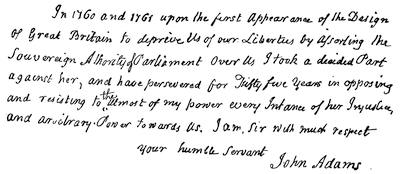 In 1760 and 1761 upon the first Appearance of the Design
of Great Britain to deprive Us of our Liberties by Assorting the
Souvereign Athority of Parliament Over Us I took a decided Part
against her, and have persevered for Fifty five Years in opposing
and resisting to the utmost of my power every Instance of her Injustice,
and arbitrary Power towards Us. I am, Sir with much respect
your humble Servant
John Adams.